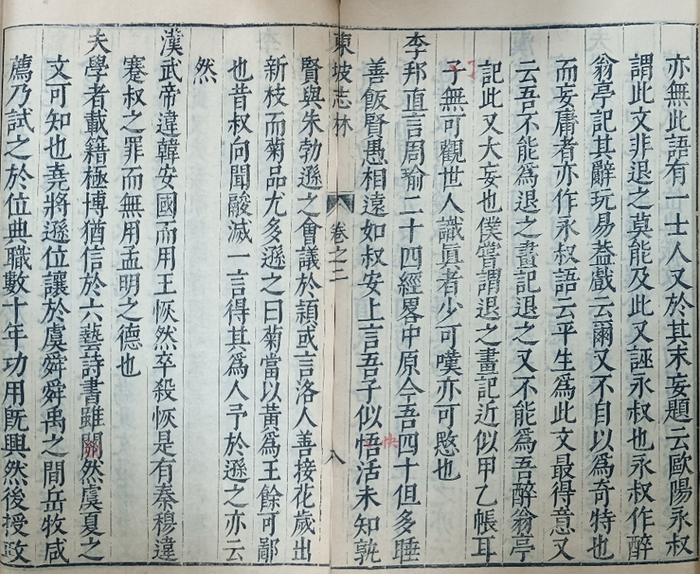 亦無此語有一士人又於其末妄題云歐陽永叔
謂此文非退之莫能及此又誣永叔也永叔作醉
翁亭記其辭玩易葢戲云爾又不自以為奇特也
而妄庸者亦作永叔語云平生為此文最得意又
云吾不能為退之畫記退之又不能為吾醉翁亭
記此又大妄也僕嘗謂退之畫記近似甲乙帳耳
子無可觀世人識眞者少可嘆亦可愍也
李邦直言周瑜二十四經畧中原今吾四十但多睡
善飯賢愚相遠如叔安上言吾子似悟活未知孰
快
東坡志林
卷之二
八
賢與朱勃遜之會議於潁或言洛人善接花歲出
新枝而菊品尤多遜之曰菊當以黃為王餘可鄙
也昔叔向聞鬷滅一言得其為人予於遜之亦云
然
漢武帝違韓安國而用王恢然卒殺恢是有秦穆違
蹇叔之罪而無用孟明之德也
夫學者載籍極博猶信於六藝詩書雖闕然虞夏之
文可知也堯將遜位讓於虞舜舜禹之間岳牧咸
薦乃試之於位典職數十年功用旣興然後授政